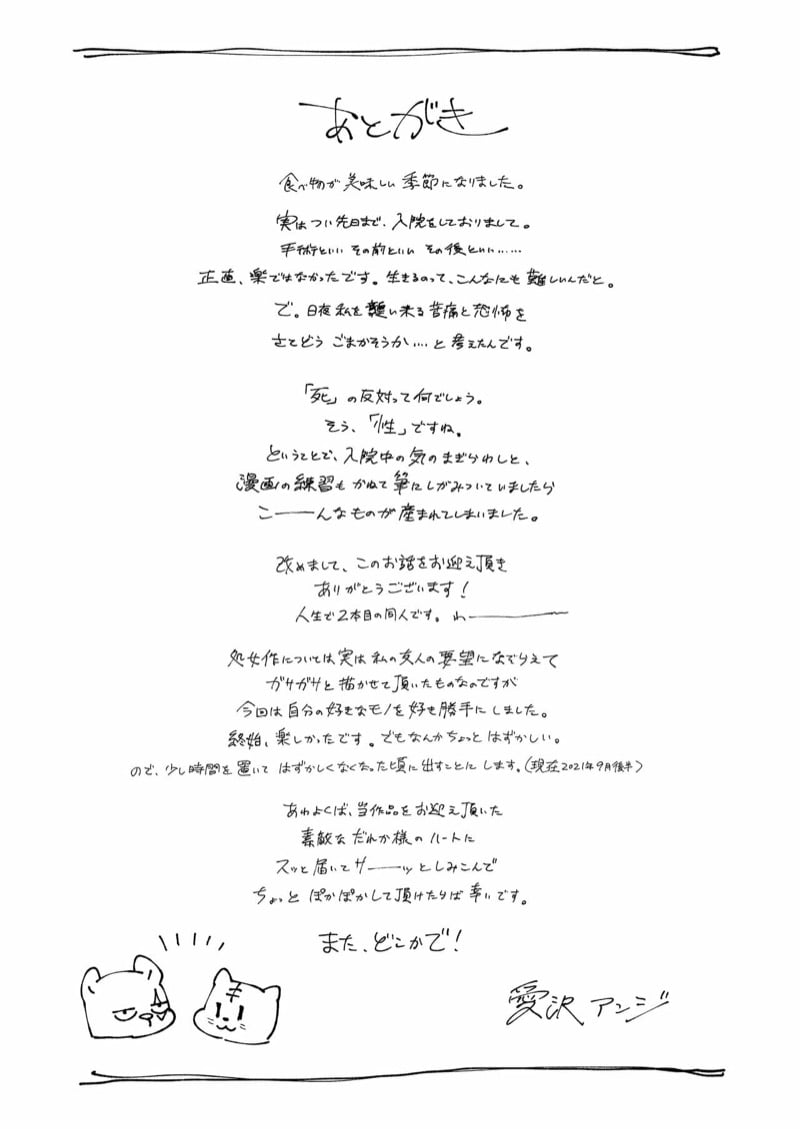 あとがき
食べ物が美味しい季節になりました。
実はつい先日まで、入院をしておりまして。
手術といい その前といい その後といい……
正直、楽ではなかったです。生きるのって、こんなにも難しいんだと。
で。日夜私を襲い来る苦痛と恐怖を
さてどう ごまかそうか…. と考えたんです。
「死」の反対って何でしょう。
そう、「性」ですね。
ということで、入院中の気のまぎらわしと、
漫画の練習も かねて筆にしがみついていましたら
こーーんなものが産まれてしまいました。
改めまして、このお話をお迎え頂き
ありがとうございます!
人生で2本目の同人です。わーーー
処女作については実は私の友人の要望になぞらえて
ガサガサと描かせて頂いたものなのですが
今回は自分の好きなモノを好き勝手にしました。
終始、楽しかったです。でもなんかちょっとはずかしい。
ので、少し時間を置いて はずかしくなくなった頃に出すことにします。(現在2021年9月後半)
あわよくば、当作品をお迎え頂いた
素敵などれか様のハートに
スッと届いてサーーッとしみこんで
ちょっと ぽかぽかして頂けたらば幸いです。
また、どこかで!
愛沢アンジ